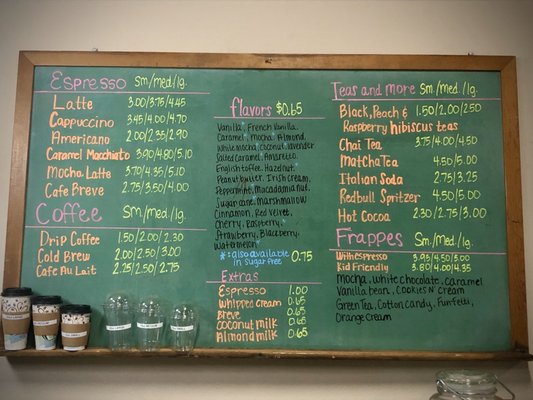 Espresso Sm/med/lg.
Latte 3.00/3.75/4.45
Cappuccino 3.45/4.00/4.70
Americano 2.00/2.35/2.90
Caramel Macchiato 3.90/4.80/5.10
Mocha Latte 3.70/4.35/5.10
Cafe Breve 2.75/3.50/4.00
Coffee Sm/med./lg.
Drip Coffee 1.50/2.00/2.30
Cold Brew 2.00/2.50/3.00
Cafe Au Lait 2.25/2.50/2.75
flavors $0.65
Vanilla, French Vanilla,
Caramel, Mocha, Almond,
White mocha, coconut, lavender
Salted Caramel, Amaretto,
English toffee, Hazelnut,
Peanut butter, Irish cream,
Peppermint, Macadamia nut,
Sugar cane, Marshmallow
Cinnamon, Red Velvet,
Cherry, Raspberry,
Strawberry, Blackberry,
Watermelon
*: also available in sugar free 0.75
Extras
Espresso 1.00
Whipped cream 0.65
Breve 0.65
Coconut milk 0.65
Almond milk 0.65
Teas and more Sm./med./lg.
Black, Peach & 1.50/2.00/2.50
Raspberry hibiscus teas
Chai Tea 3.75/4.00/4.50
Matcha Tea 4.50/5.00
Italian Soda 2.75/3.25
Redbull Spritzer 4.50/5.00
Hot Cocoa 2.30/2.75/3.00
Frappes Sm/med./lg.
With espresso 3.95/4.50/5.00
Kid Friendly 3.80/4.00/4.35
Mocha, white chocolate, caramel
Vanilla bean, Cookies N cream
Green Tea, Cotton candy, Funfetti,
Orange Cream